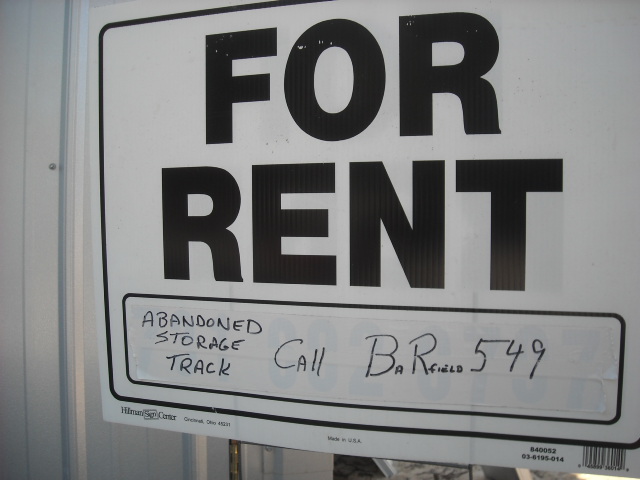 FOR
RENT
ABANDONED
STORAGE
TRACK
Call BaRfield 549
Hillman Sign Center Cincinnati, Ohio 45231
Made in U.S.A.
840052
03-6195-014